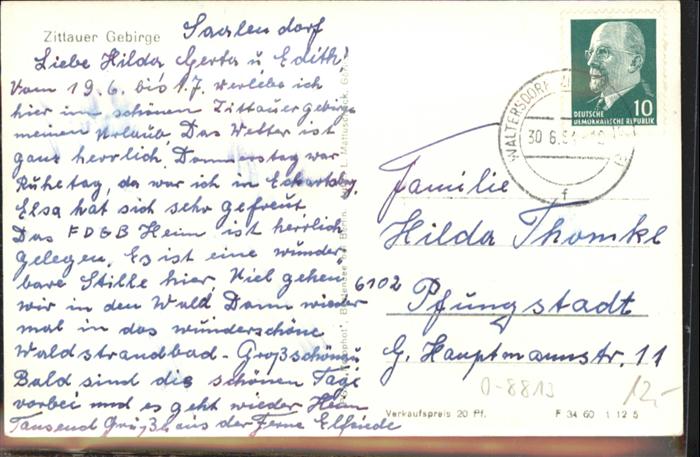 Zittauer Gebirge Saalendorf
Liebe Hilda Gerta u Edith!
Vom 19.6. bis 1.7. verlebe ich
hier im schönen Zittauergebirge
meinen Urlaub Das Wetter ist
ganz herrlich. Donnerstag war
Ruhetag, da war ich in Eckartsbg,
Elsa hat sich sehr gefreut.
Das FDGB Heim ist herrlich
gelegen. Es ist eine wunder
bare Stille hier, Viel gehen
wir in den Wald Dann wieder
mal in das wunderschöne
Waldstrandbad - Großschönau
Bald sind die schönen Tage
vorbei und es geht wieder Heim
Tausend Grüße aus der Ferne Elfriede
10
DEUTSCHE
DEMOKRATISCHE REPUBLIK
WALTERSDORF
30.6.
f
Familie
Hilda Thomke
6102 Pfungstadt
G. Hauptmannstr. 11
0-8813
12,-
Verkaufspreis 20 Pf. F 34 60 1 12 5